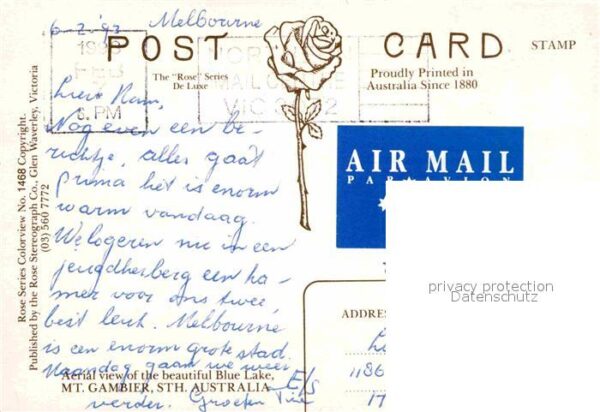 6-2-'92 Melbourne
POST CARD
STAMP
The "Rose" Series
De Luxe
Proudly Printed in
Australia Since 1880
FEB
6 PM
NOR
MAIL CE
VIC
Lieve
Nog even een be-
richtje, alles gaat
prima het is enorm
warm vandaag.
We logeren nu in een
jeugdherberg een ka-
mer voor ons twee
best leuk. Melbourne
is een enorm grote stad.
Maandag gaan we weer
verder. Groeten
E/S
Rose Series Colorview No. 1468 Copyright.
Published by the Rose Stereograph Co., Glen Waverley, Victoria
(03) 560 7772
AIR MAIL
PAR AVION
privacy protection
Datenschutz
ADDRE
1186
17
Aerial view of the beautiful Blue Lake,
MT. GAMBIER, STH. AUSTRALIA